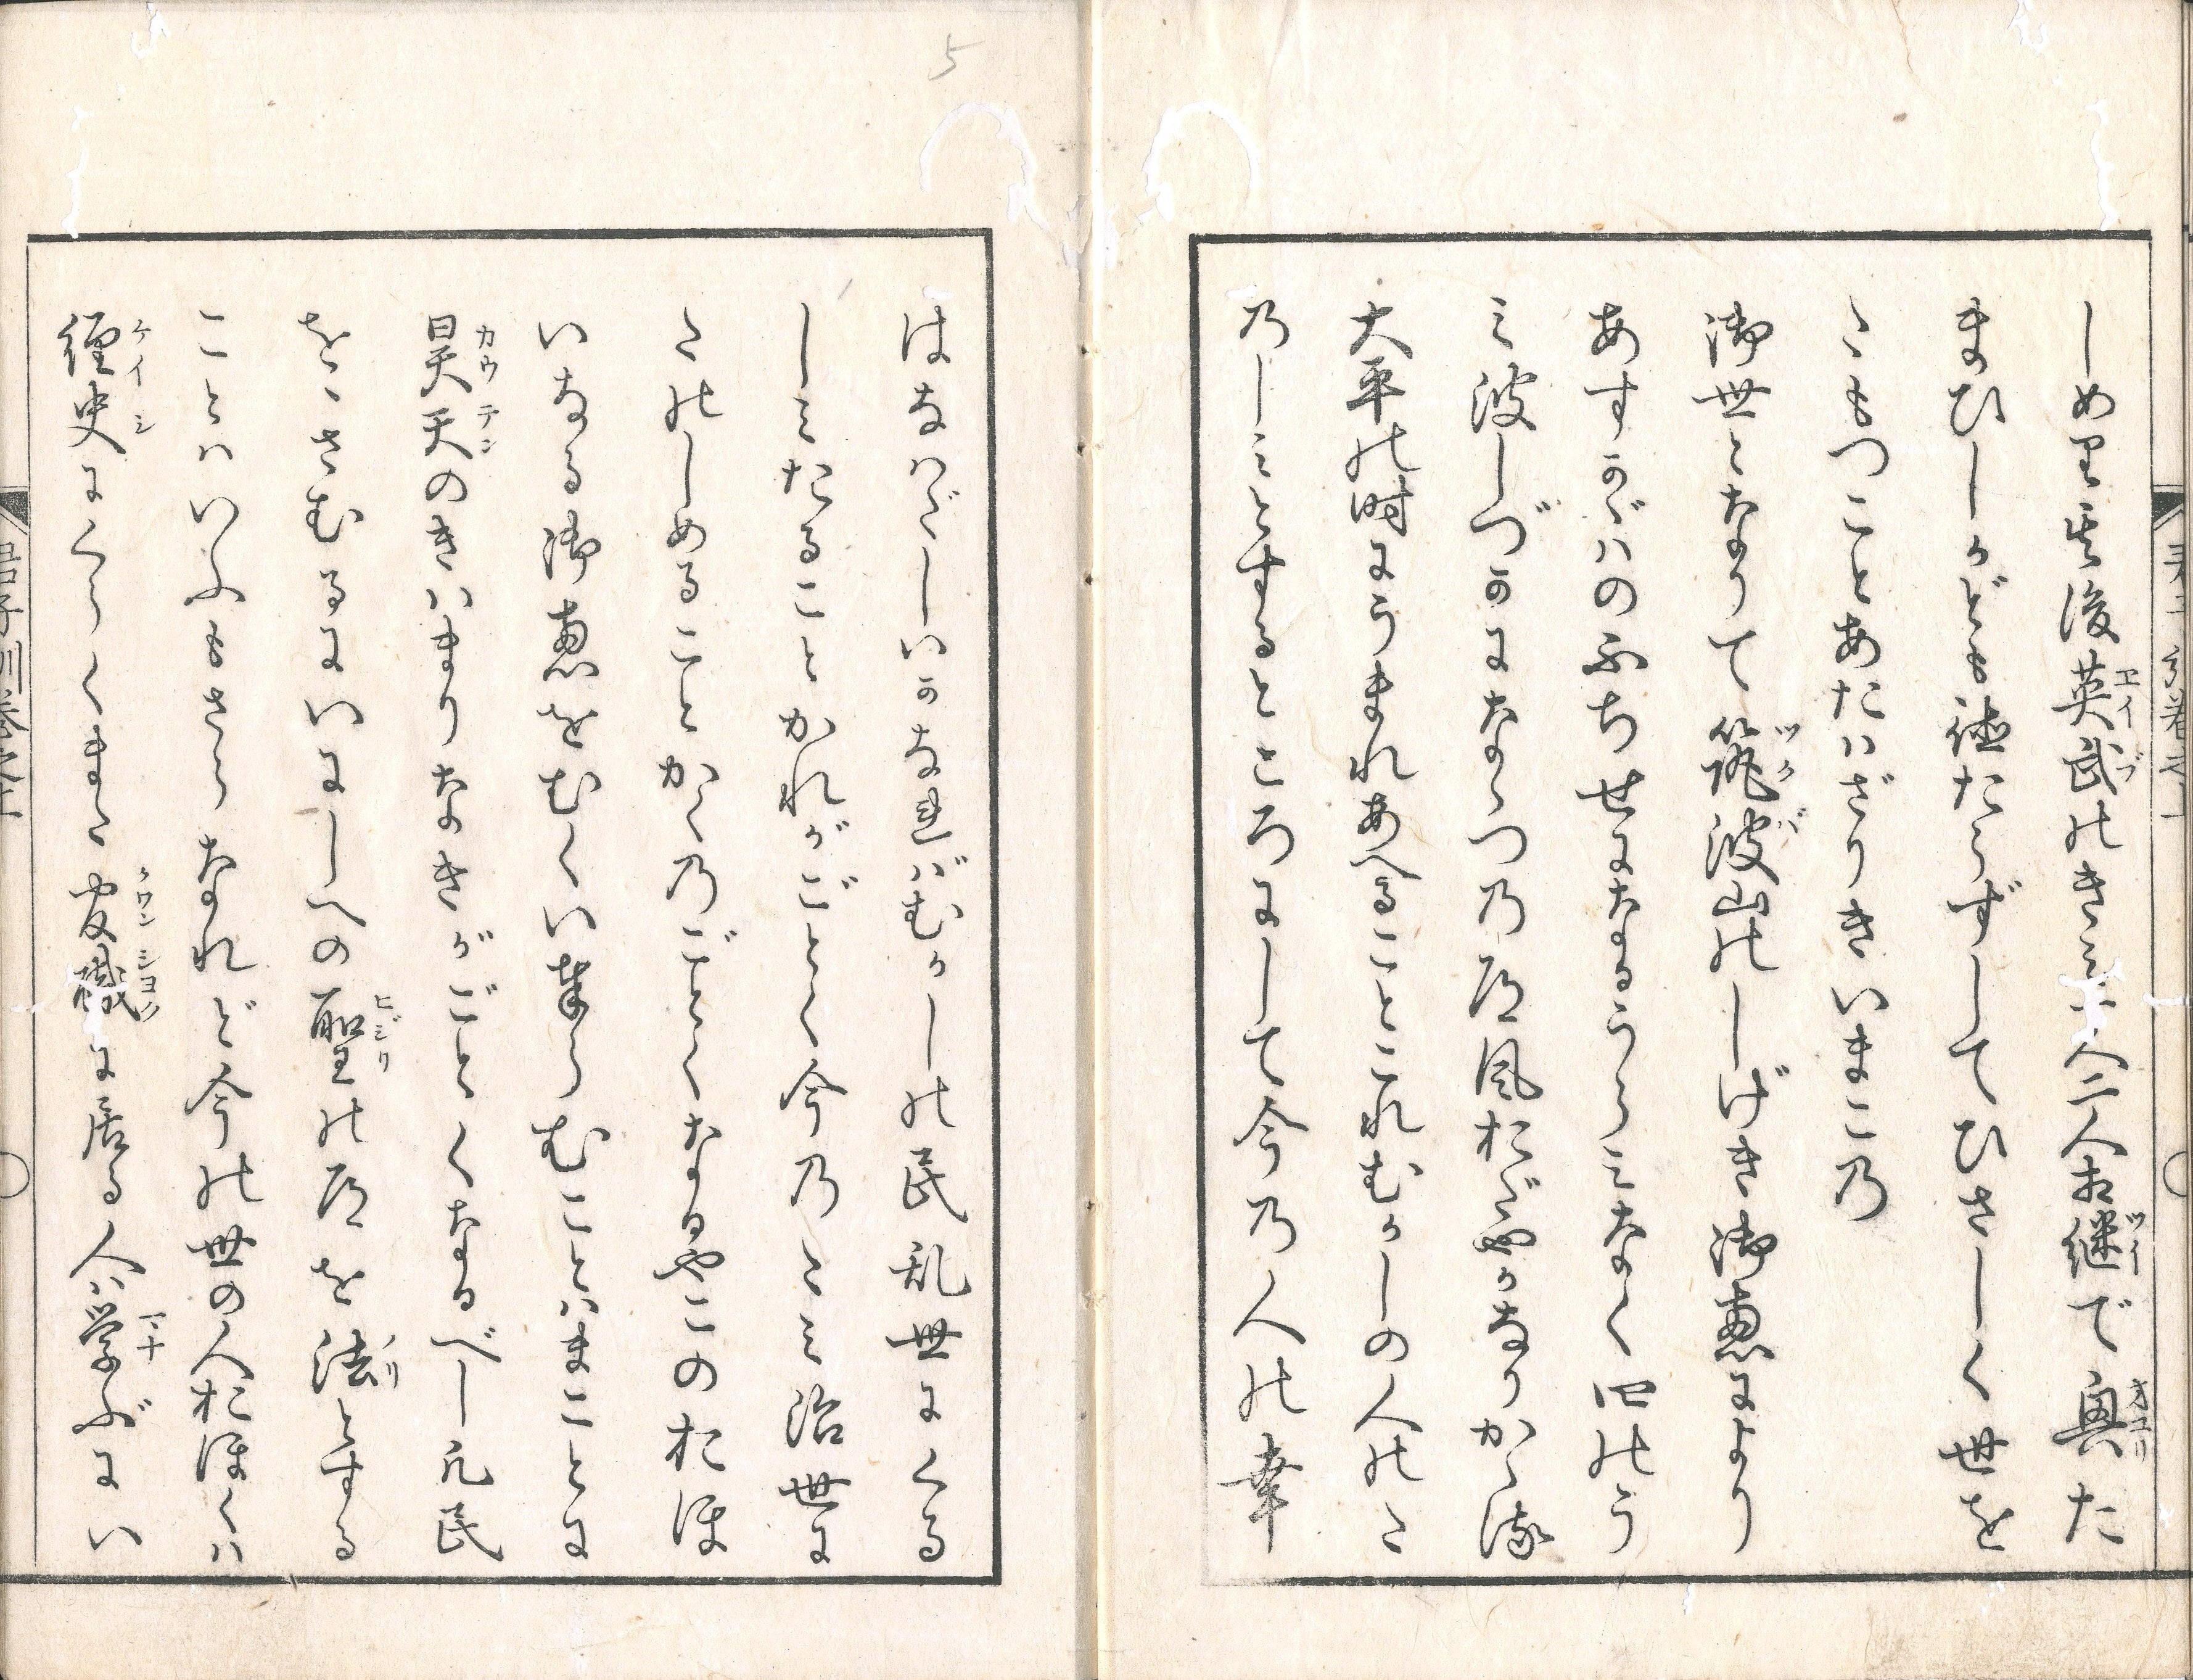 しめり其後英武のきミ一人二人相継で輿た
まひしかども徳たらずしてひさしく世を
たもつことあたハざりきいまこの
御世となりて筑波山のしげき御恵により
あすかゞハのふちせになるうらミなく四のう
ミ波しづかになゝつの道風おだやかなりかゝる
大平の時にうまれあへることこれむかしの人のた
のしミとするところにして今の人の幸
はなハだしいかなれバむかしの民乱世にくる
しミたることかれがごとく今のたミ治世に
たのしめることかくのごとくなるやこのおほ
いなる御恵をむくい奉らむことハまことに
昊天のきハまりなきがごとくなるべし凡民
をゝさむるにいにしへの聖の道を法とする
ことハいふもさらなれど今の世の人おほくハ
経史にくらくまた官職に居る人ハ学ぶにい